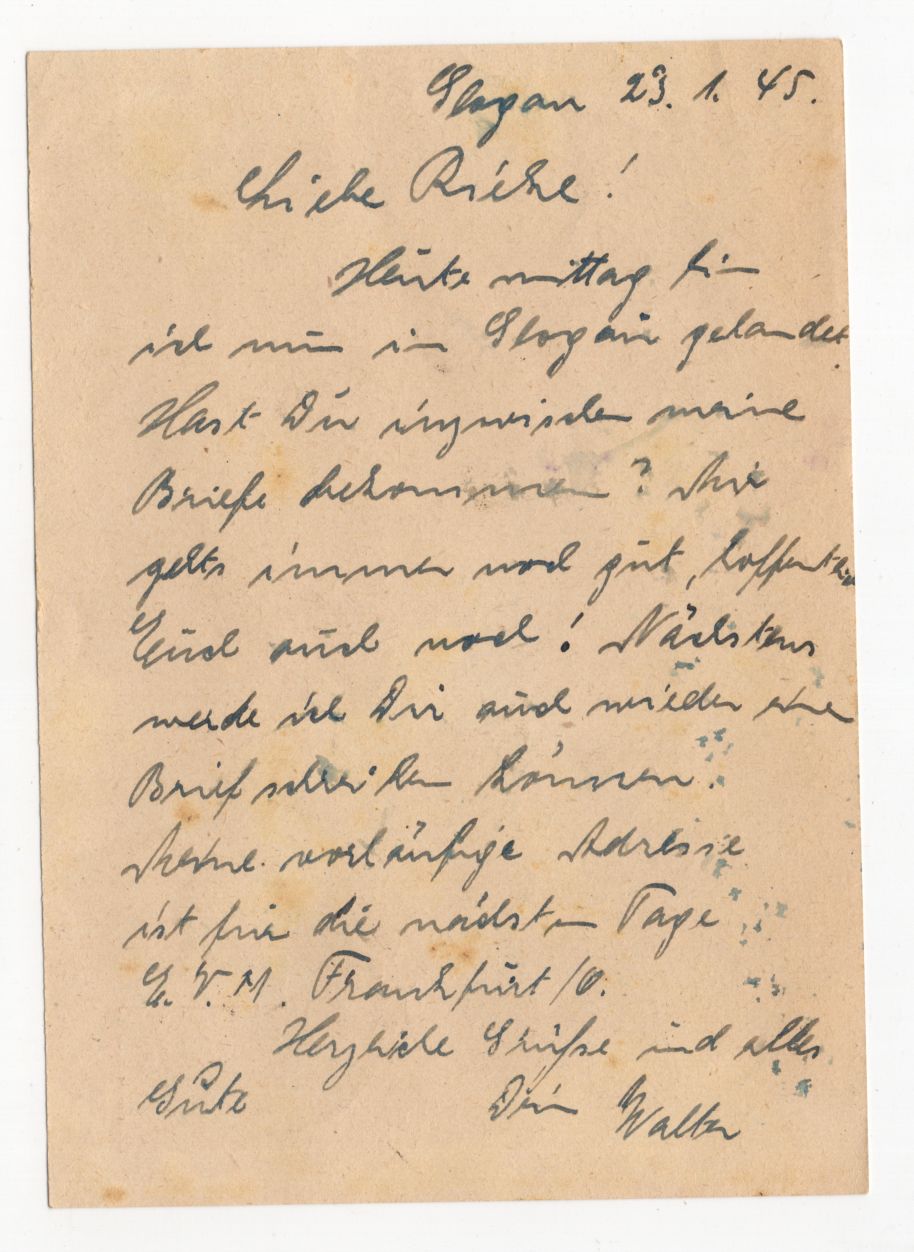 Glogau 23. 1. 45.
Liebe Rieke!
Heute mittag bin
ich nun in Glogau gelandet.
Hast Du inzwischen meine
Briefe bekommen? Mir
gehts immer noch gut, hoffentlich
Euch auch noch! Nächstens
werde ich Dir auch wieder einen
Brief schreiben können.
Meine vorläufige Adresse
ist für die nächsten Tage
Frankfurt/O.
Herzliche Grüße und alles
Gute Dein Walter